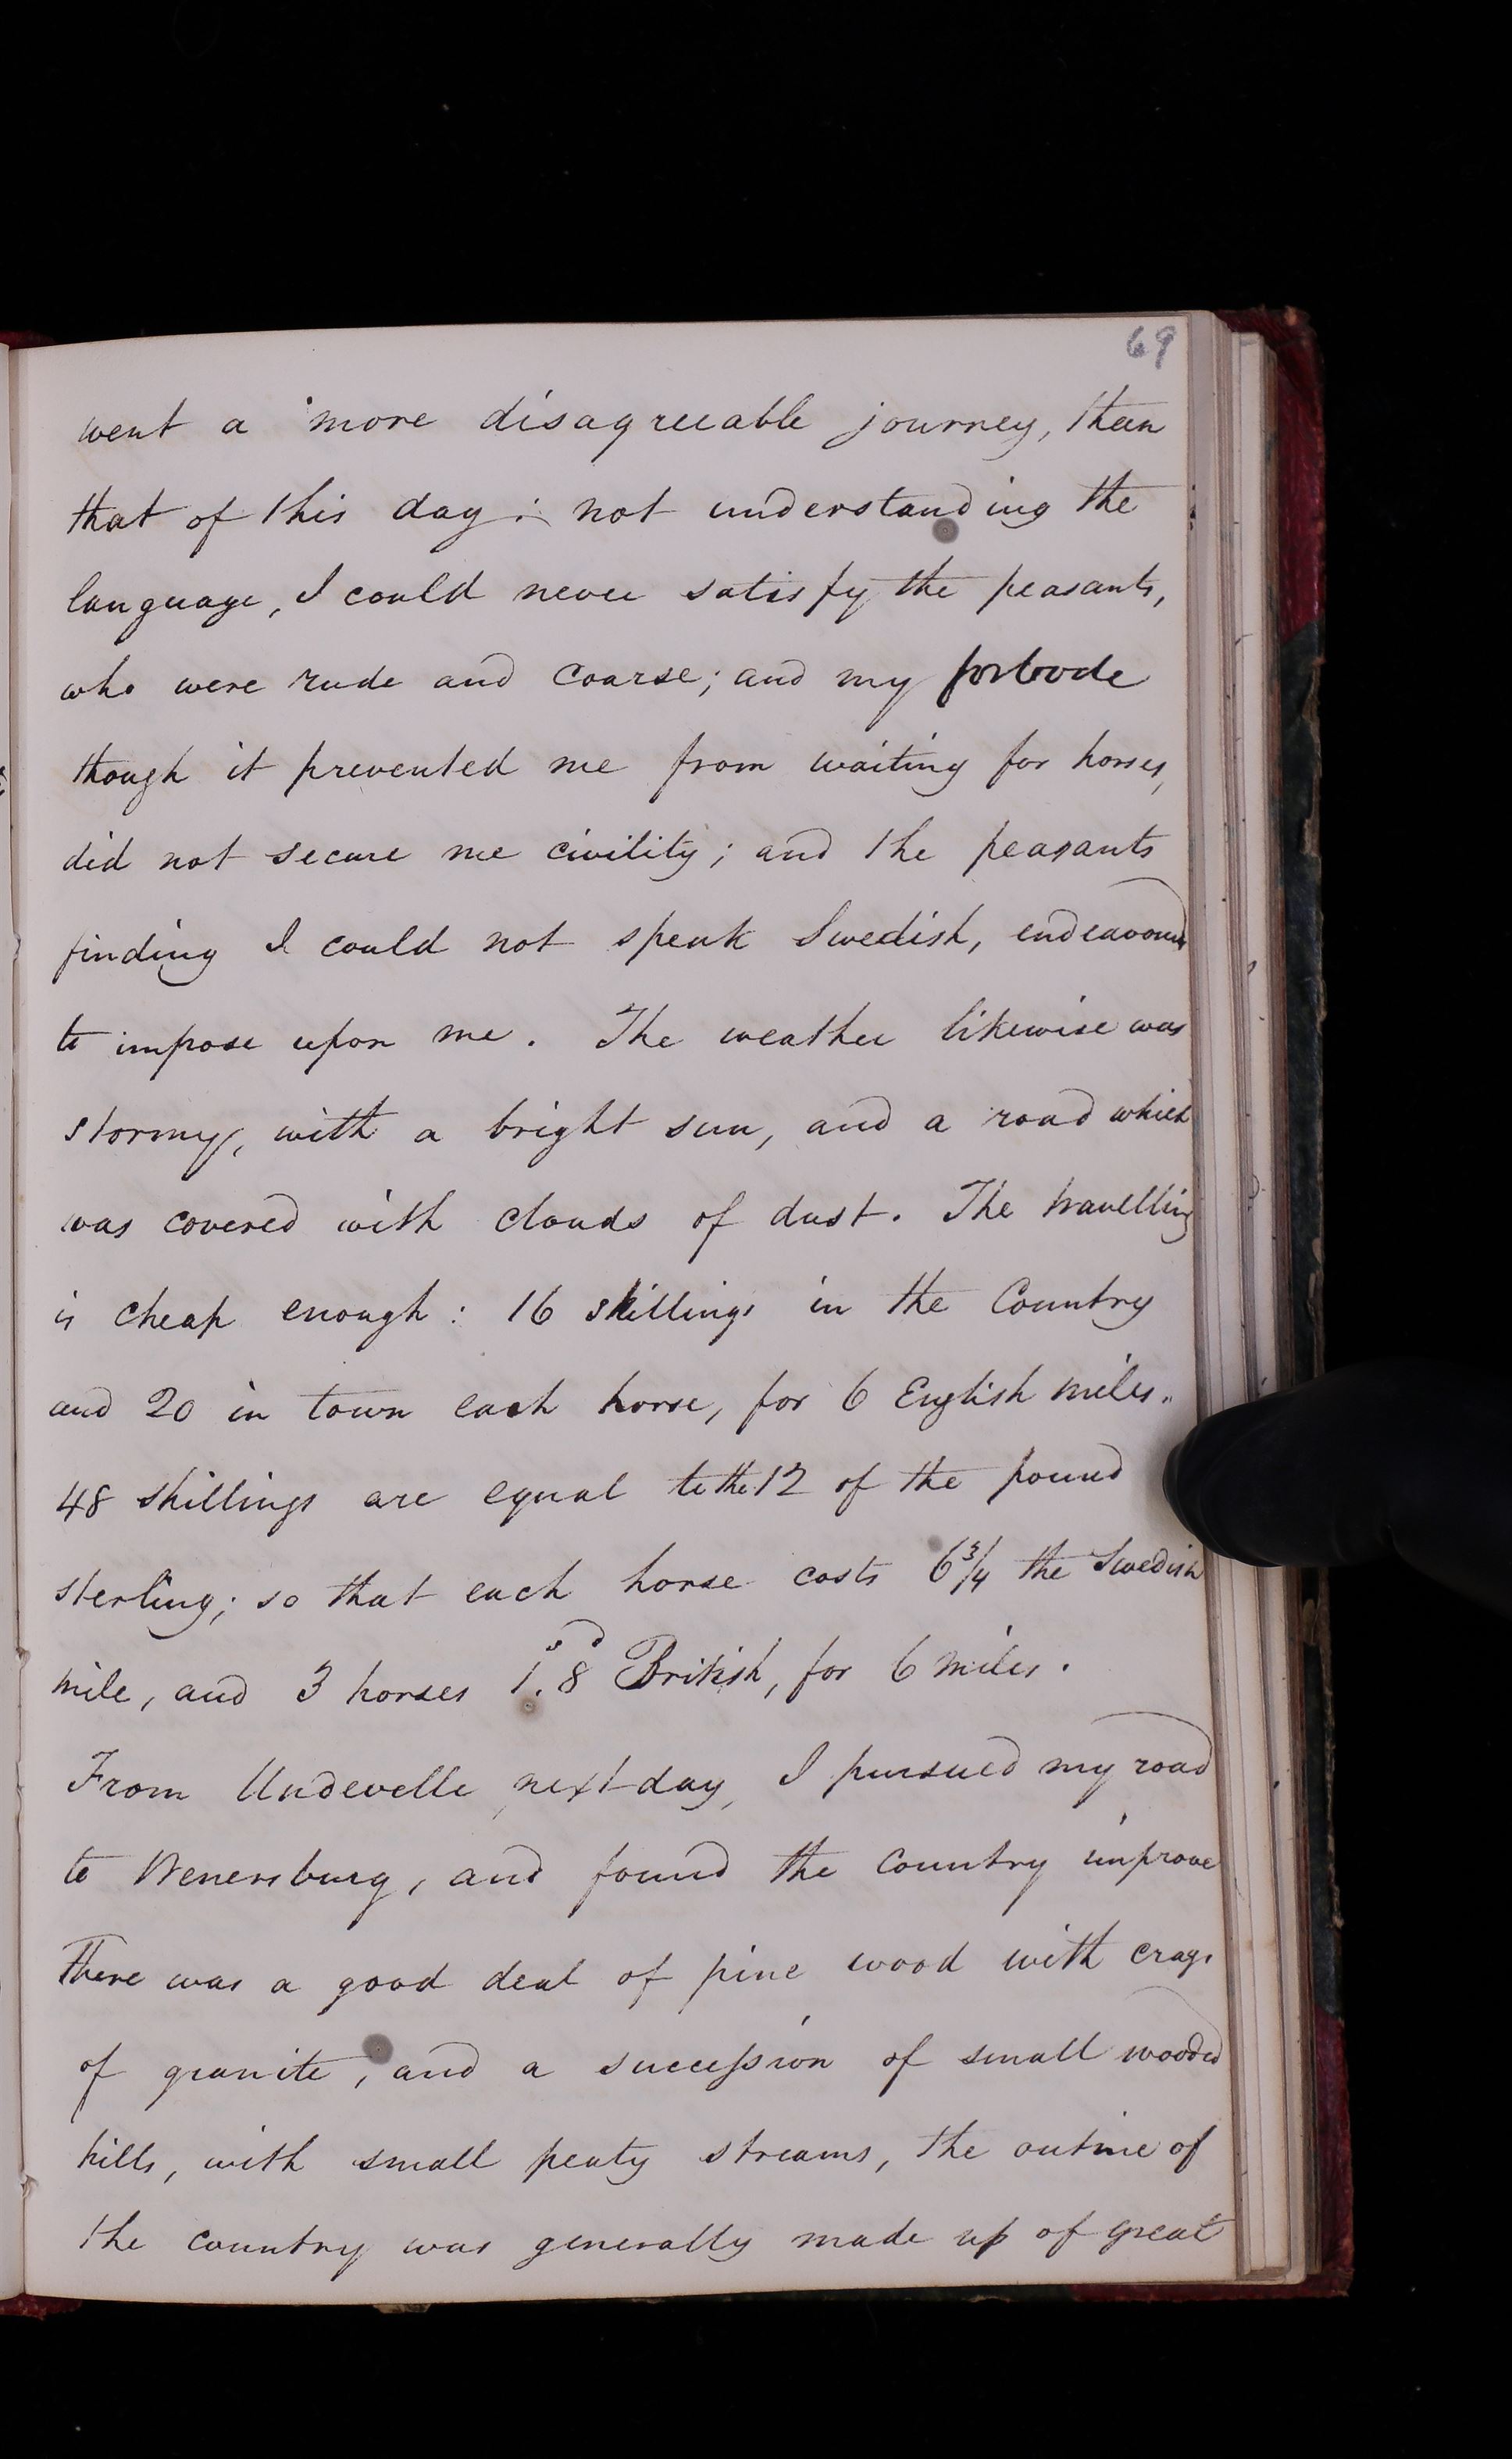 69
went a more disagreeable journey, than
that of this day; not understanding the
language, I could never satisfy the peasants,
who were rude and coarse; and my forbode
though it prevented me from waiting for horses,
did not secure me civility; and the peasants
finding I could not speak Swedish, endeavoured
to impose upon me. The weather likewise was
stormy, with a bright sun, and a road which
was covered with clouds of dust. The travelling
is cheap enough: 16 skillings in the Country
and 20 in town each horse, for 6 English miles.
48 skillings are equal to the 12 of the pound
sterling; so that each horse costs 6 3/4 the Swedish
mile, and 3 horses 1s. 8d British, for 6 miles.
From Undevelle next day, I pursued my road
to Wenersburg, and found the Country improve
There was a good deal of pine wood with crags
of granite, and a succession of small wooded
hills, with small peaty streams, the outine of
the country was generally made up of great